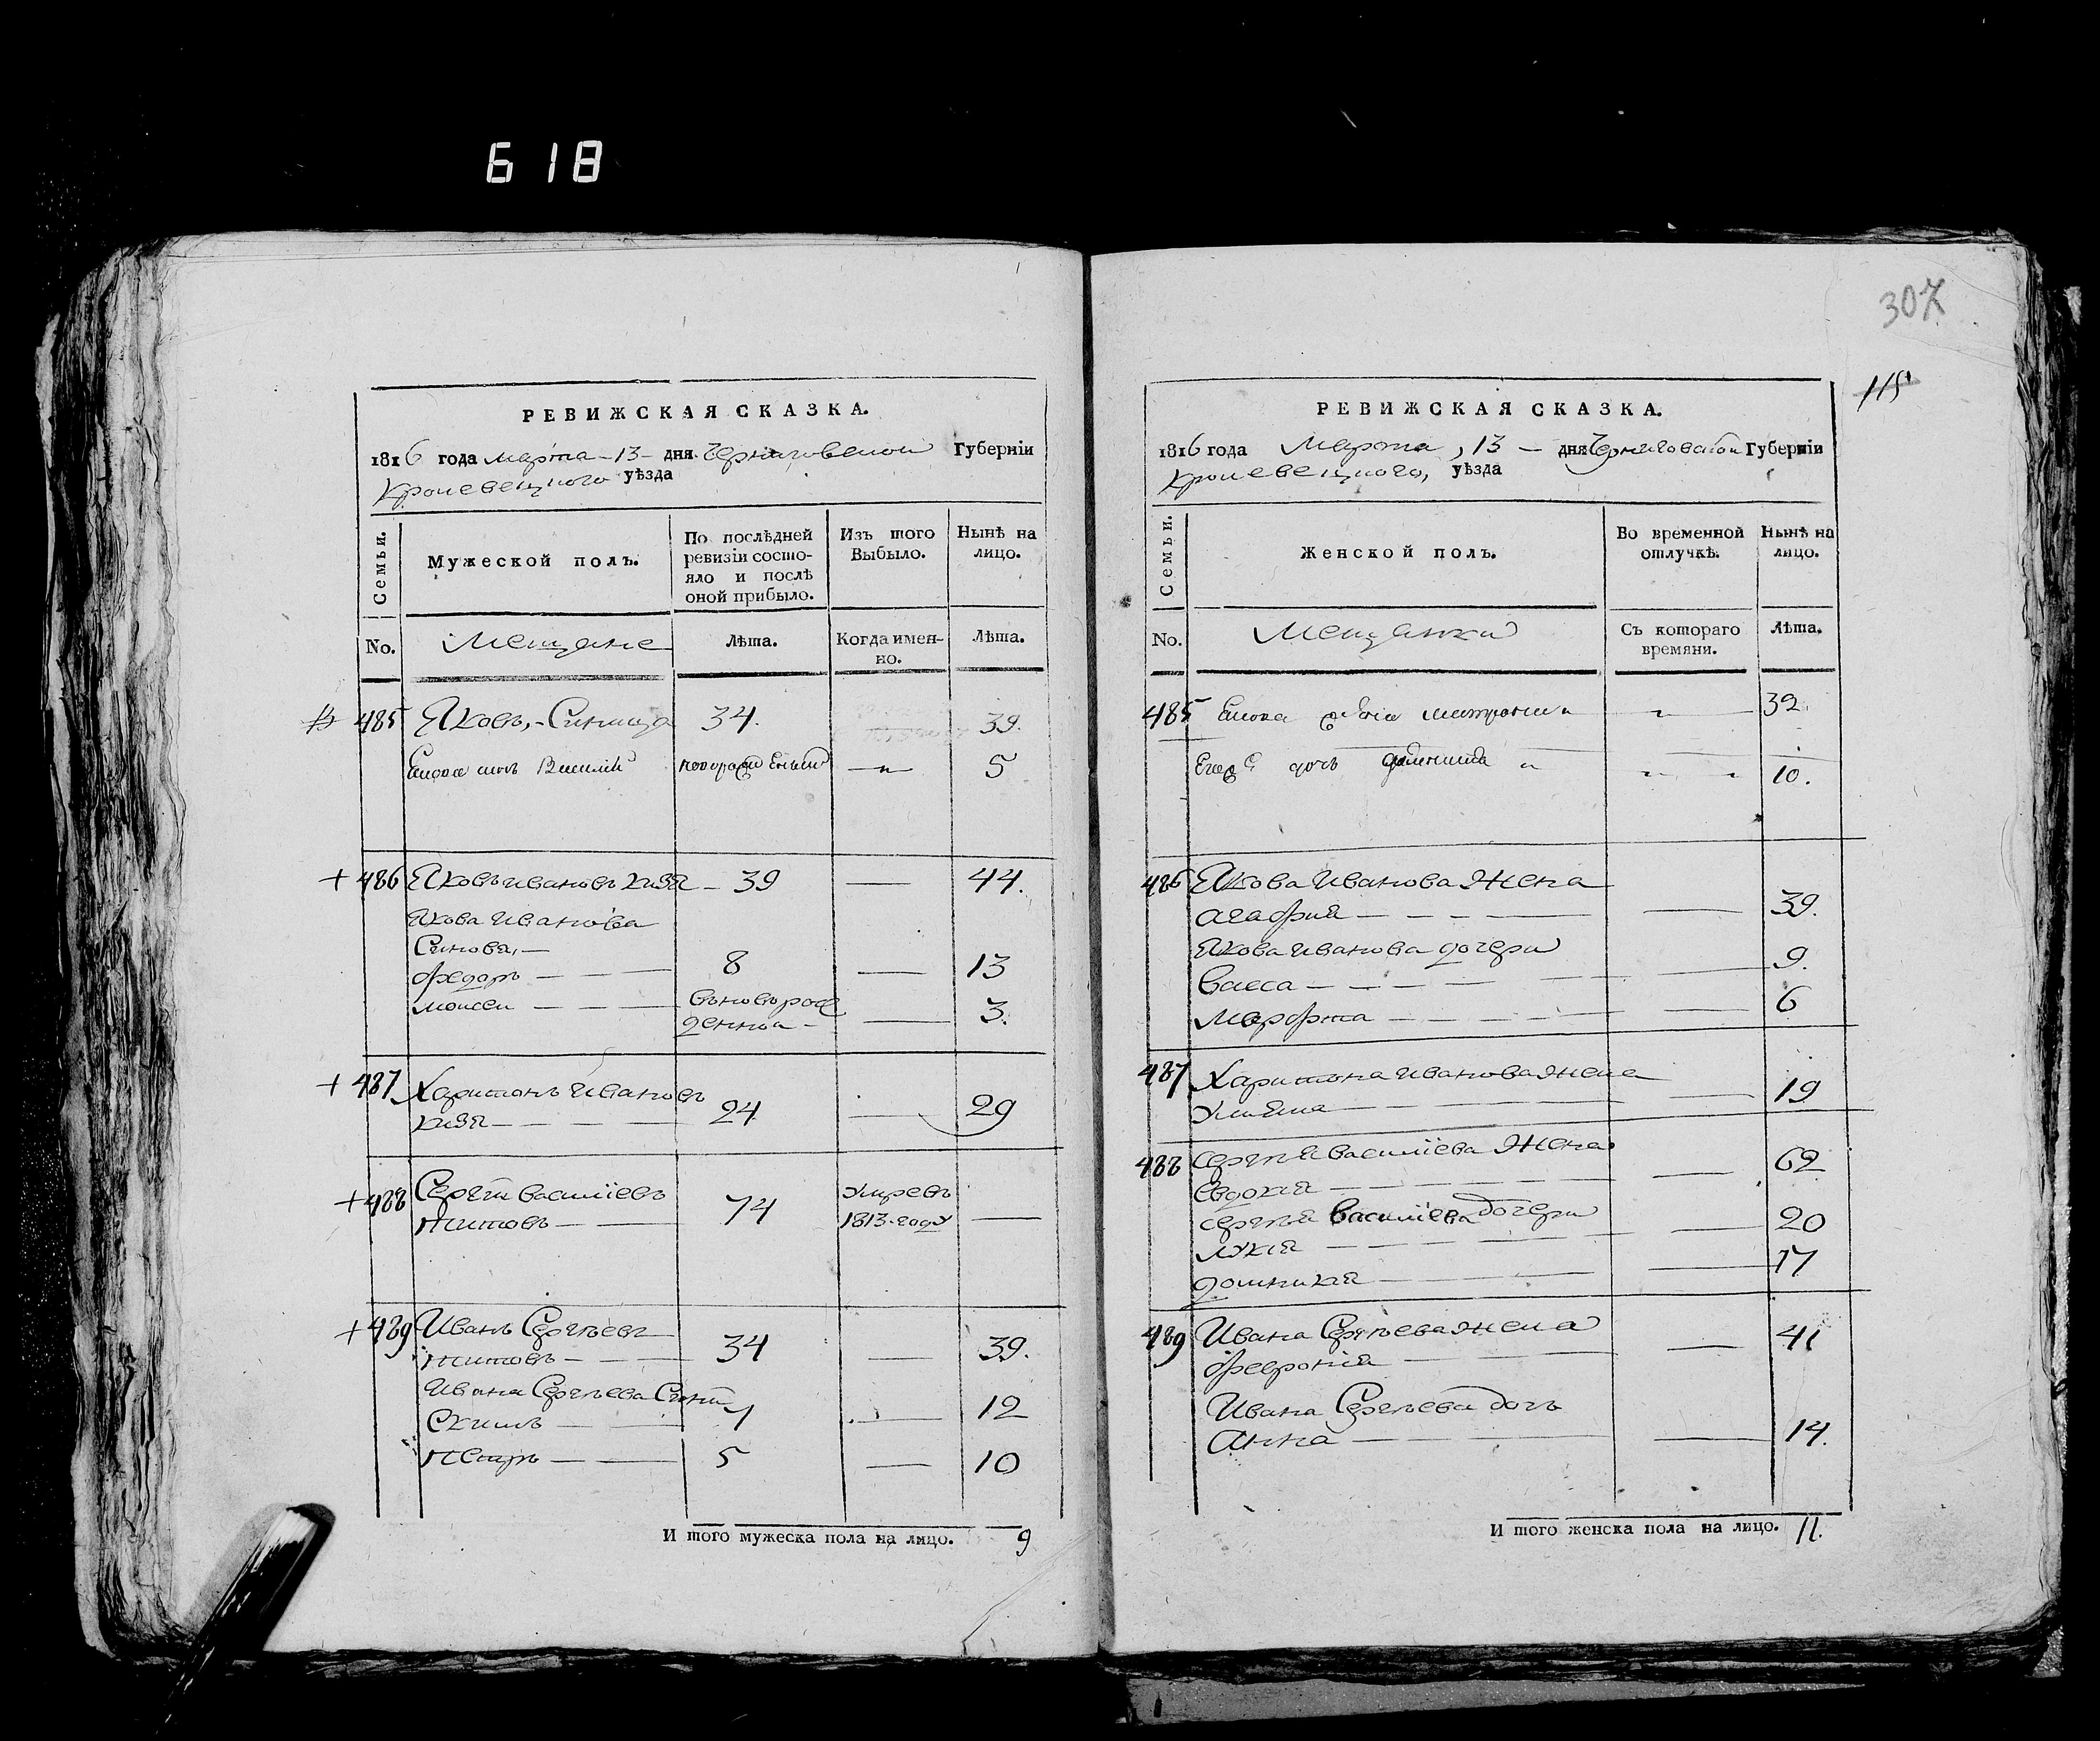 618
307
115
РЕВИЖСКАЯ СКАЗКА.
1816 года Марта - 13 - дня Черниговской Губерніи
Кролевецкого уѣзда
Семьи.
Мужеской полъ.
По послѣдней ревизіи состояло и послѣ оной прибыло.
Изъ того Выбыло.
Нынѣ на лицо.
No. Мещане Лѣта. Когда именно. Лѣта.
485 Яковъ, - Синица 34. 39.
сынъ Василий новорожденный — 5
+ 486 Яковъ Ивановъ Кизя - 39 — 44.
Якова Иванова
Синовя, -
Федоръ — 8 — 13
Моисей — вьновьрож
денной - — 3.
+ 487 Харитонъ Ивановъ
Кизя — 24 — 29
+ 488 Сергѣй Василіевъ
Титовъ — 74 умревъ
1813 году —
+ 489 Иванъ Сергѣевъ
Титовъ — 34 — 39.
Ивана Сергѣева Сины
— 7 — 12
Петръ — 5 — 10
И того мужеска пола на лицо. 9
РЕВИЖСКАЯ СКАЗКА.
1816 года Марта, 13 — дня Черниговской Губерніи
Кролевецкого, уѣзда
Семьи.
Женской полъ.
Во временной отлучкѣ.
Нынѣ на лицо.
No. Мещанки Съ котораго времяни. Лѣта.
485 жена 32.
дочь 10.
486 Якова Иванова Жена
Агафия — — 39.
Якова Иванова дочери
Васса — — 9.
Марфта — — 6
487 Харитона Иванова жена
Улияна — — 19
488 Сергѣя Василіева Жена
Евдокия — — 62
Сергѣя Василіева дочери
Лукія — — 20
Домникия — — 17
489 Ивана Сергѣева жена
Феврония — — 41
Ивана Сергѣева дочь
Анна — — 14.
И того женска пола на лицо. 11.